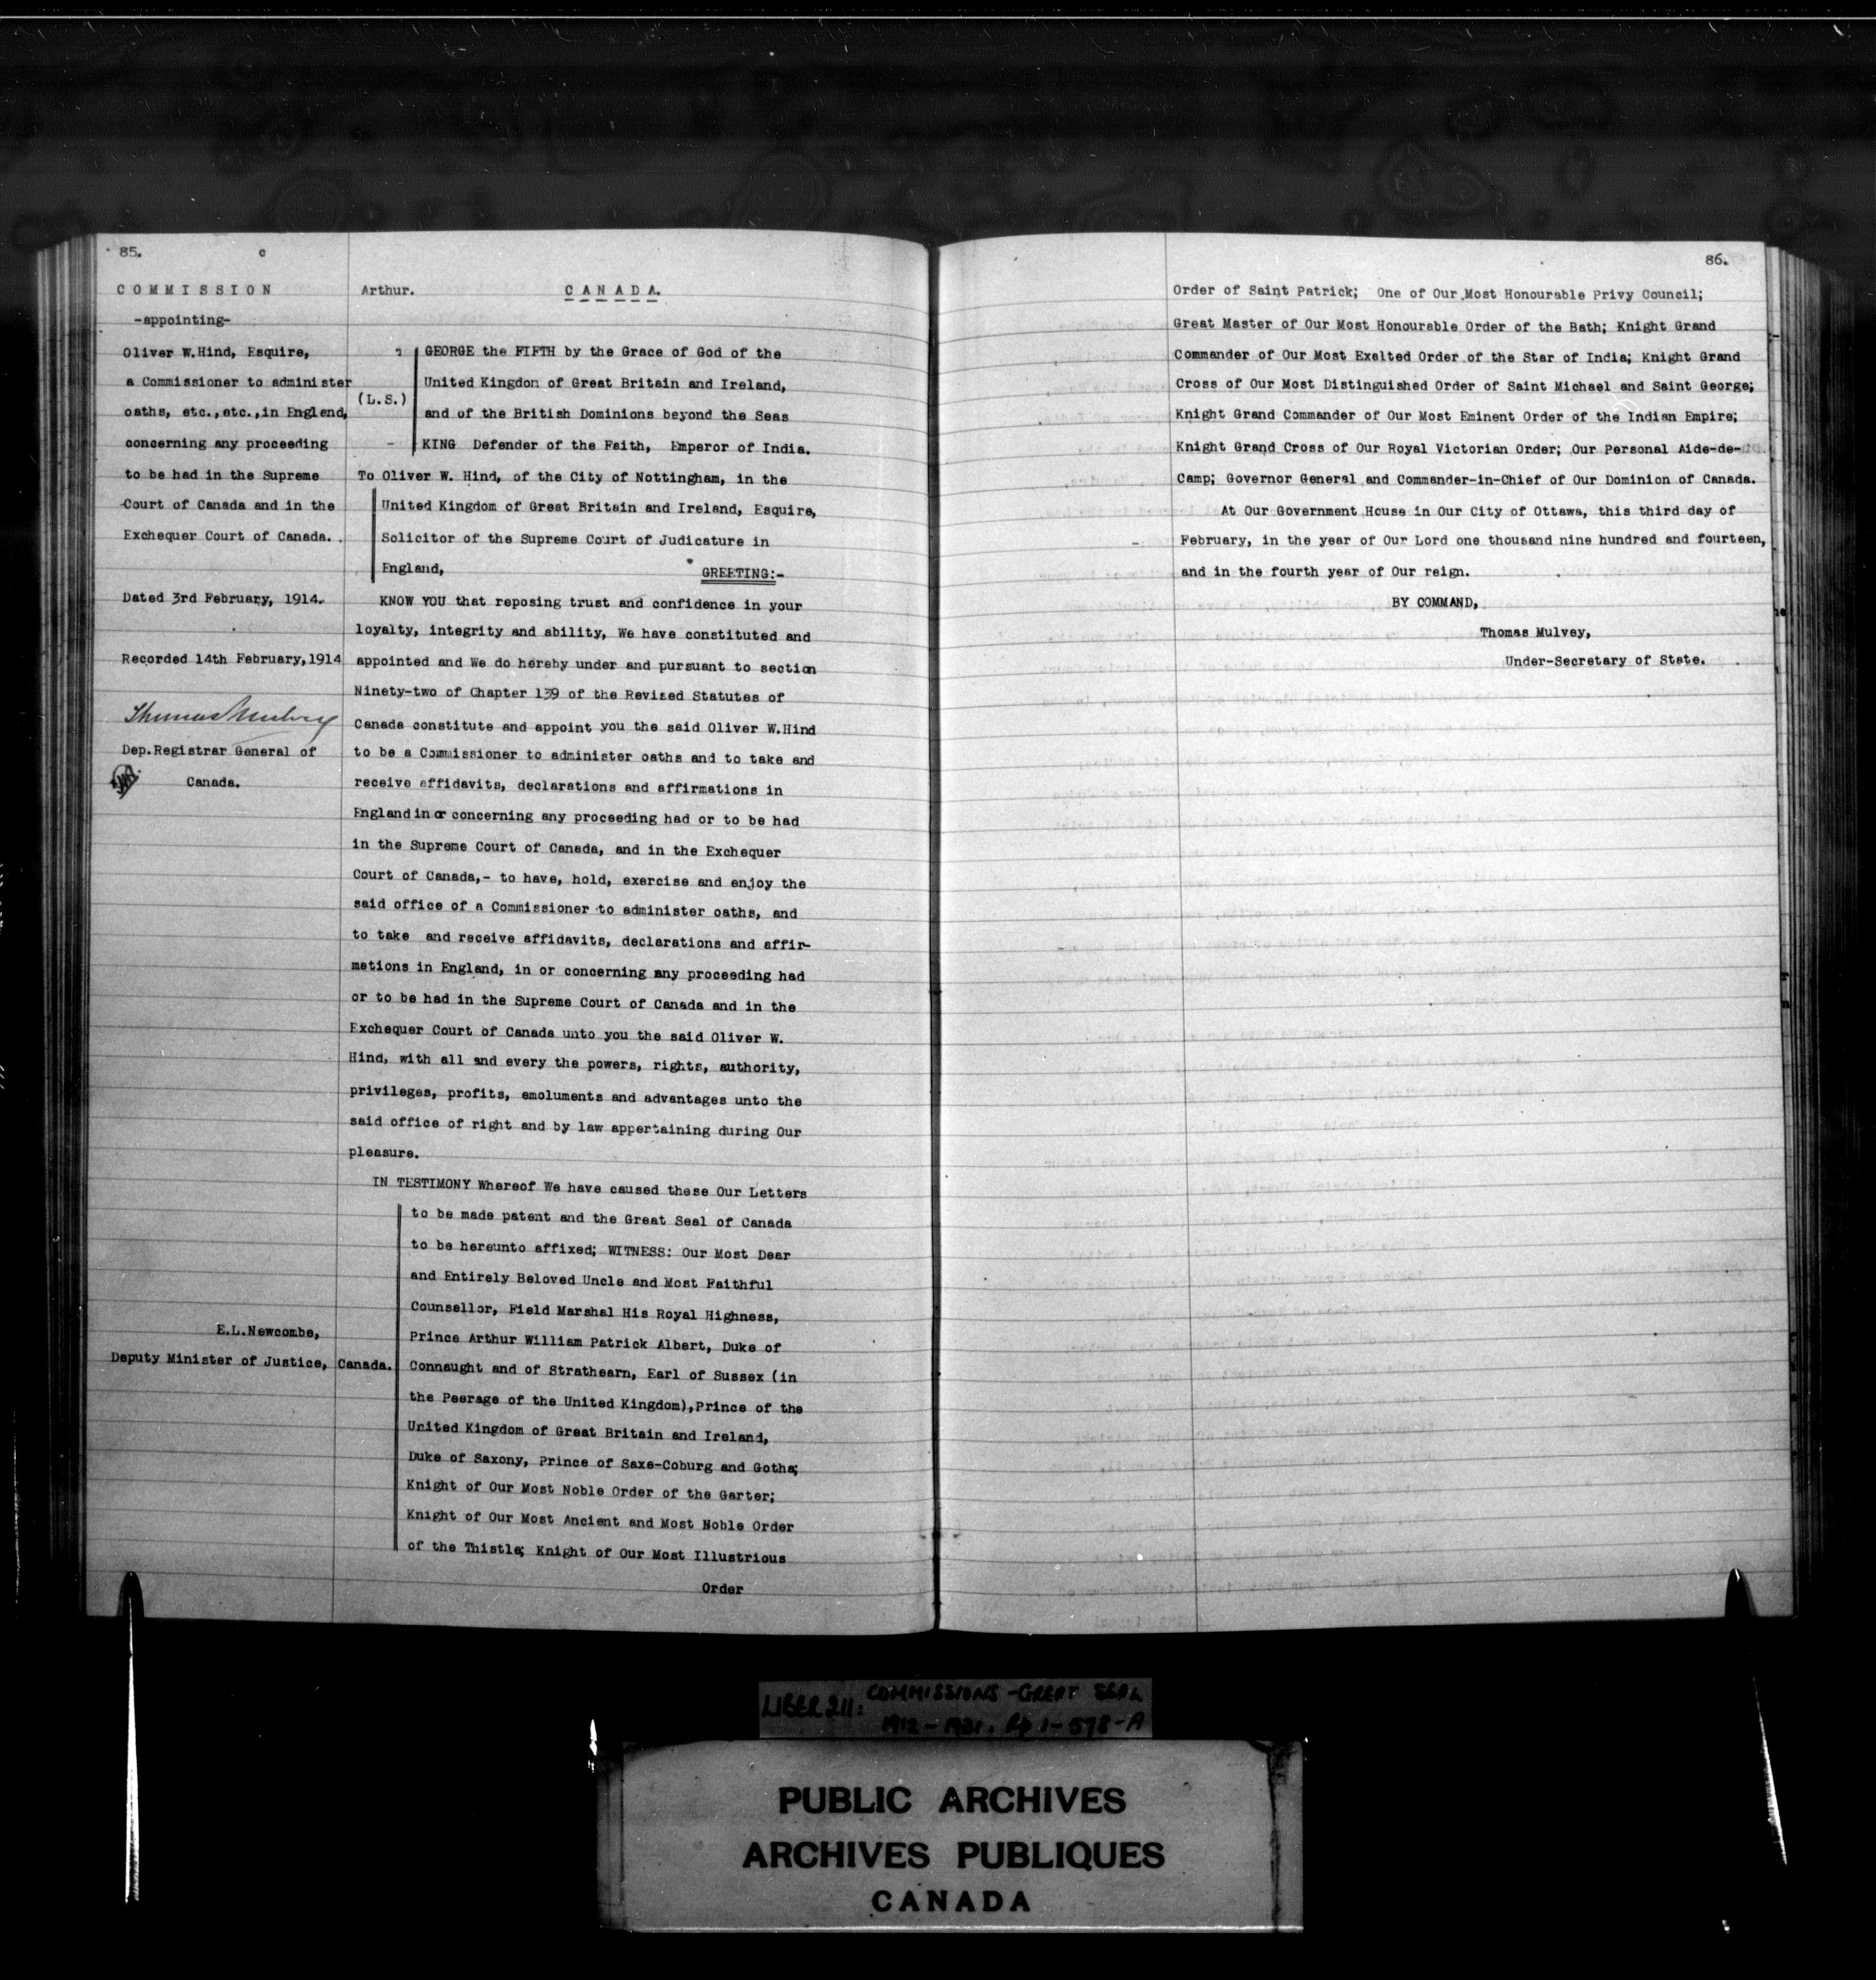 85.
COMMISSION
-appointing-
Oliver W.Hind, Esquire,
a Commissioner to administer
oaths, etc.,etc.,in England,
concerning any proceeding
to be had in the Supreme
Court of Canada and in the
Exchequer Court of Canada.
Dated 3rd February, 1914.
Recorded 14th February,1914
Thomas Mulvey
Dep.Registrar General of
Canada.
E.L.Newcombe,
Deputy Minister of Justice, Canada.
Arthur. CANADA.
(L.S.)
GEORGE the FIFTH by the Grace of God of the
United Kingdon of Great Britain and Ireland,
and of the British Dominions beyond the Seas
KING Defender of the Faith, Emperor of India.
To Oliver W. Hind, of the City of Nottingham, in the
United Kingdom of Great Britain and Ireland, Esquire,
Solicitor of the Supreme Court of Judicature in
England, GREETING:-
KNOW YOU that reposing trust and confidence in your
loyalty, integrity and ability, We have constituted and
appointed and We do hereby under and pursuant to section
Ninety-two of Chapter 139 of the Revised Statutes of
Canada constitute and appoint you the said Oliver W.Hind
to be a Commissioner to administer oaths and to take and
receive affidavits, declarations and affirmations in
England in or concerning any proceeding had or to be had
in the Supreme Court of Canada, and in the Exchequer
Court of Canada,- to have, hold, exercise and enjoy the
said office of a Commissioner to administer oaths, and
to take and receive affidavits, declarations and affir-
mations in England, in or concerning any proceeding had
or to be had in the Supreme Court of Canada and in the
Exchequer Court of Canada unto you the said Oliver W.
Hind, with all and every the powers, rights, authority,
privileges, profits, emoluments and advantages unto the
said office of right and by law appertaining during Our
pleasure.
IN TESTIMONY Whereof We have caused these Our Letters
to be made patent and the Great Seal of Canada
to be hereunto affixed; WITNESS: Our Most Dear
and Entirely Beloved Uncle and Most Faithful
Counsellor, Field Marshal His Royal Highness,
Prince Arthur William Patrick Albert, Duke of
Connaught and of Strathearn, Earl of Sussex (in
the Peerage of the United Kingdom),Prince of the
United Kingdom of Great Britain and Ireland,
Duke of Saxony, Prince of Saxe-Coburg and Gotha;
Knight of Our Most Noble Order of the Garter;
Knight of Our Most Ancient and Most Noble Order
of the Thistle; Knight of Our Most Illustrious
Order
86.
Order of Saint Patrick; One of Our Most Honourable Privy Council;
Great Master of Our Most Honourable Order of the Bath; Knight Grand
Commander of Our Most Exalted Order of the Star of India; Knight Grand
Cross of Our Most Distinguished Order of Saint Michael and Saint George;
Knight Grand Commander of Our Most Eminent Order of the Indian Empire;
Knight Grand Cross of Our Royal Victorian Order; Our Personal Aide-de-
Camp; Governor General and Commander-in-Chief of Our Dominion of Canada.
At Our Government House in Our City of Ottawa, this third day of
February, in the year of Our Lord one thousand nine hundred and fourteen,
and in the fourth year of Our reign.
BY COMMAND,
Thomas Mulvey,
Under-Secretary of State.
LIBER 211: COMMISSIONS - GREAT SEAL
1912-1921. Pp 1-578-A
PUBLIC ARCHIVES
ARCHIVES PUBLIQUES
CANADA